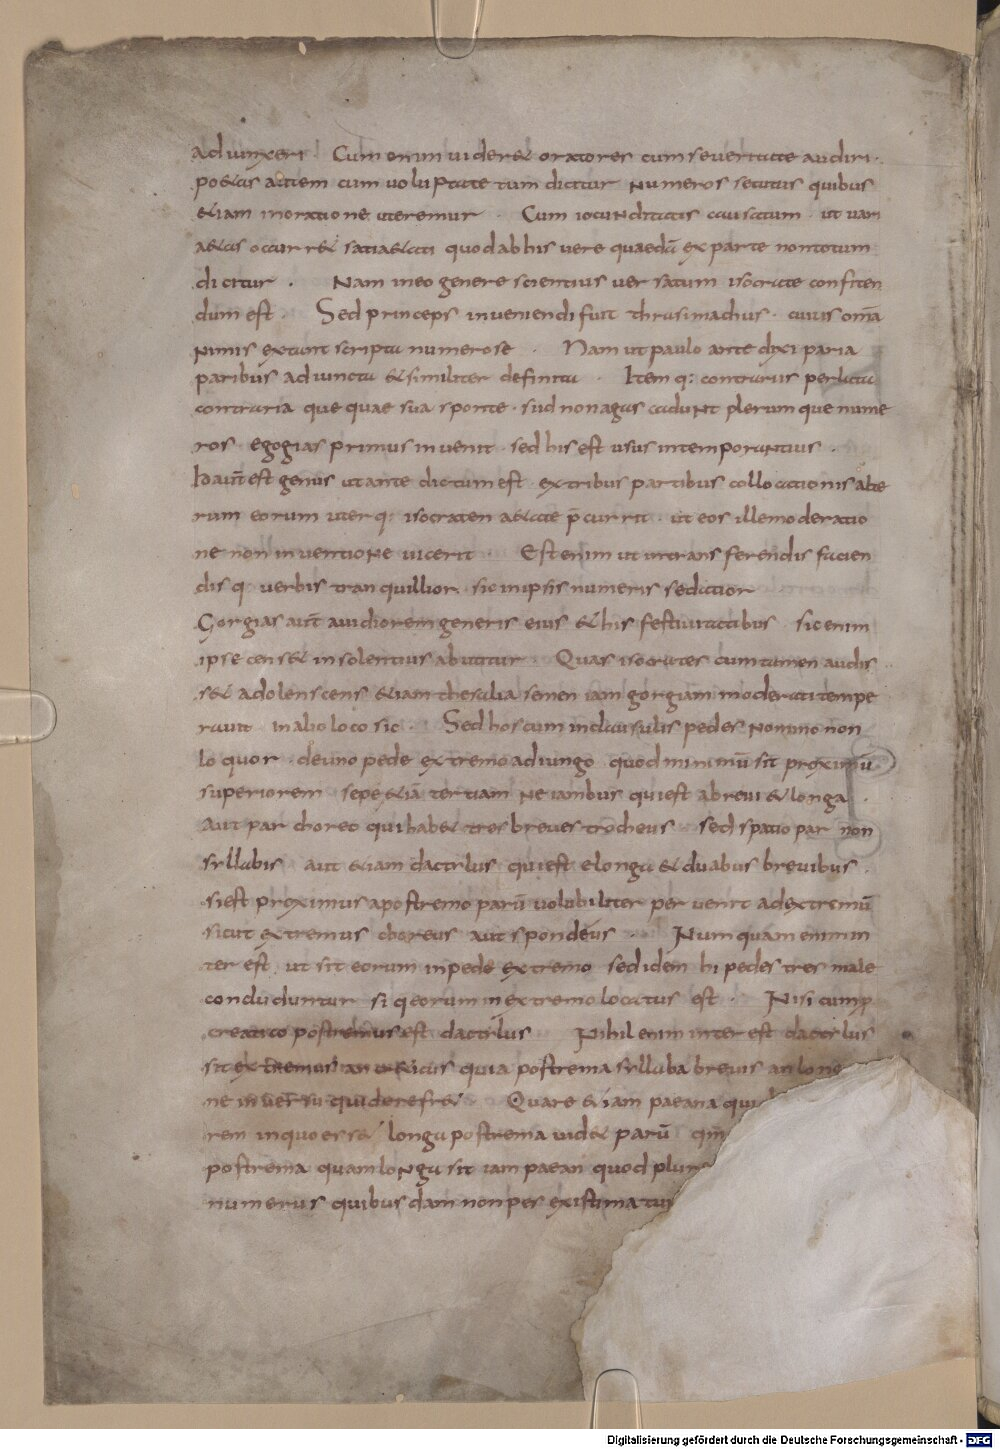 adiunxeri Cum enim uider& oratores cum seueritate audiri·
po&as autem cum uoluptate tum dicitur Numeros secutus quibus
&iam inoratione uteremur · Cum iocunditatis causatum · ut uari
a&as occurr& satia&ati quod ab his uere quaedā ex parte nontotum
dicitur · Nam ineo genere scientius uersatum isocrate confiten
dum est · Sed princeps inueniendi fuit thrasimachus · cuius omā
nimis extant scripta numerose · Nam ut paulo ante dixi paria
paribus adiuncta & similiter definita · Item q: contrariis perlata
contraria que quae sua sponte · sud non agas cadunt plerumque nume
ros egogias primus inuenit · sed his est usus intemporantius ·
hautē est genus ut ante dictum est · ex tribus partibus collocationis alte
rum eorum uterq: isocraten a&ate p̄currit · ut eos ille moderatio
ne non inuentione uicerit · Est enim ut intransferendis facien
disq· uerbis tranquillior · sic inipsis numeris sedatior
Gorgias aūt auidiorem generis eius & his festiuitatibus · sic enim
ipse cens& insolentius abutitur · Quas isocrates cum tamen audis
s& adolenscens &iam thesalia senen iam gorgiam moderati tempe
rauit in alio loco sic · Sed hos cum inclausulis pedes Nomino non
loquor · de uno pede extremo adiungo quod minimū sit proximū
superiorem sepe &iā tertiam ne iambus qui est abreui & longa
aut par choreo qui hab& tres breues trocheus sed spatio par non
syllabis aut &iam dactylus qui est elonga & duabus breuibus ·
siest proximus apostremo parū uolubiliter peruenit adextremū
sicut extremus choreus aut spondeus · Numquam enim in
ter est ut sit eorum inpede extremo sed idem hi pedes tres male
conduduntur si q eorum in extremo locatus est · Nisi cum p
creatico postremus est dactylus Nihil enim inter est dactylus
sit extremus an &icus quia postrema syllaba breuis an lon
ne in uersu quiderefr& · Quare &iam paeana qui
rem inquo ers& longa postrema uid& parū qm̄
postrema quam longa sit iam paean quod plur
numerus quibusdam non per existimatur
Digitalisierung gefördert durch die Deutsche Forschungsgemeinschaft - DFG